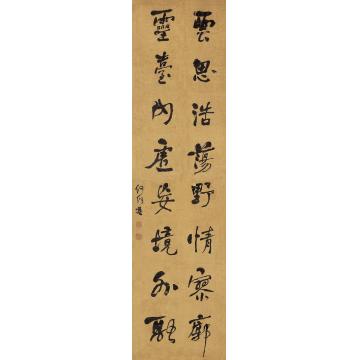 雲思浩蕩野情寥廓
靈臺內虛妄境外融
何紹基